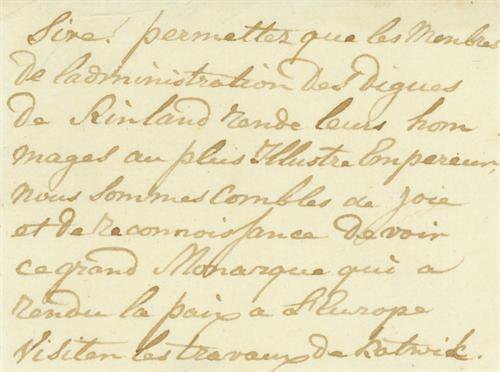 Sire! permettez que les Membres
de ladministration des digues
de Rinland rende leurs hom
mages au plus Illustre Empereur,
nous sommes combles de joie
et de reconnoissance de voir
ce grand Monarque qui a
rendu la paix a L'Europe
Visiten les travaux de Katwik.